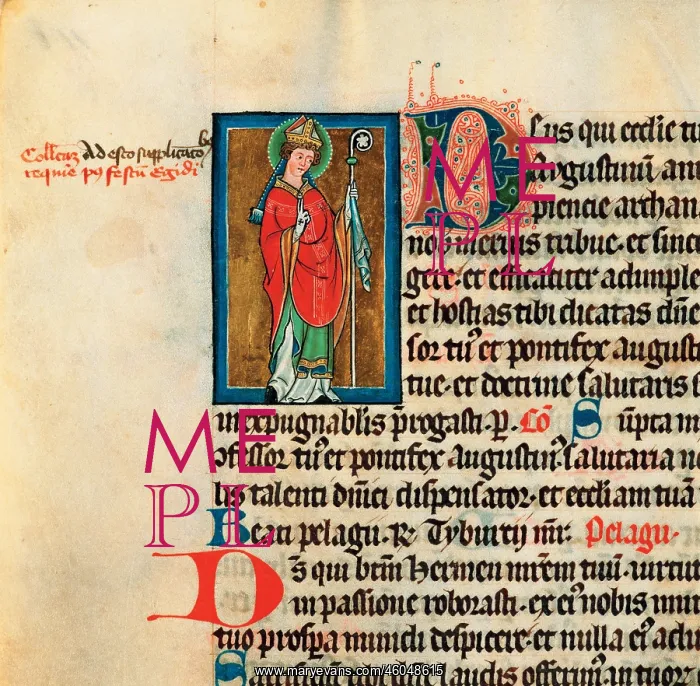 Collcaꝫ Adesto supplicatōıb
requie pꝰ festū Egidi
Dıus qui ecclie tu
Augustinū am
piencie archan
nob meritis tribue·et sinc
gere·et efficaciter adimple
et hostias tibi dicatas dñe
sor tuꝰ et pontifex augusti
tue·et doctrine salutaris s
inexpugnabl̄is ꝓrogasti·P. Cō Sūpta m
ꝯfessor tuꝰ et pontifex augustinꝰ·salutaria n
lis talenti dñici dispensator·et eccliam tuā
Beati pelagii·R Tyburtij mr̄· Pelagii·
Ds qui btm̄ Hermen mr̄em tuū·uirtut
in passione roborasti·ex eiꝰ nobis imit
tuo prospa mundi despicere·et nulla eiꝰ adu
Sacrificiū laudis offerimꝰ·in tuoꝝ
ME
PL
ME
PL
www.maryevans.com/46048615